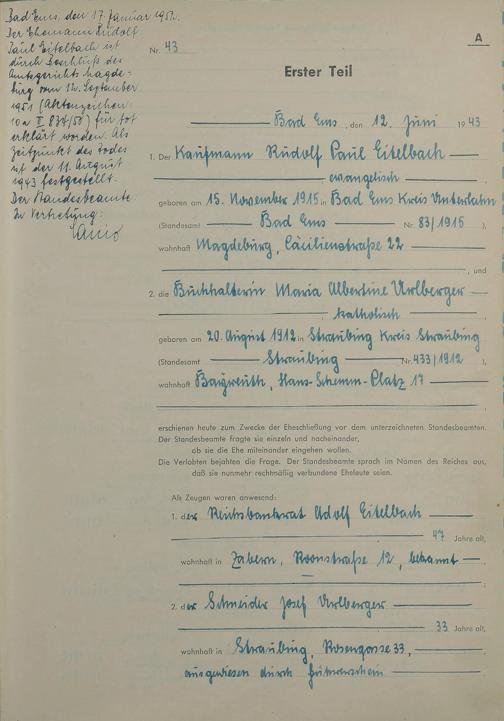 Bad Ems, den 17. Januar 1951.
Der Ehemann Rudolf
Paul Eitelbach ist
durch Beschluß des
Amtsgerichts Magde-
burg vom 12. September
1951 (Aktenzeichen:
10a II 834/50) für tot
erklärt worden. Als
Zeitpunkt des Todes
ist der 11. August
1943 festgestellt.
Der Standesbeamte
In Vertretung:
A
Nr. 43
Erster Teil
Bad Ems, den 12. Juni 1943
1. Der Kaufmann Rudolf Paul Eitelbach
evangelisch
geboren am 15. November 1915 in Bad Ems Kreis Unterlahn
(Standesamt Bad Ems Nr. 83/1915),
wohnhaft Magdeburg, Cäcilienstraße 22
, und
2. die Buchhalterin Maria Albertine Urlberger
katholisch
geboren am 20. August 1912 in Straubing Kreis Straubing
(Standesamt Straubing Nr. 433/1912),
wohnhaft Bayreuth, Hans-Schemm-Platz 17
erschienen heute zum Zwecke der Eheschließung vor dem unterzeichneten Standesbeamten.
Der Standesbeamte fragte sie einzeln und nacheinander,
ob sie die Ehe miteinander eingehen wollen.
Die Verlobten bejahten die Frage. Der Standesbeamte sprach im Namen des Reiches aus,
daß sie nunmehr rechtmäßig verbundene Eheleute seien.
Als Zeugen waren anwesend:
1. der Reichsbankrat Adolf Eitelbach
47 Jahre alt,
wohnhaft in Zabern, Roonstraße 12, bekannt
2. der Schneider Josef Urlberger
33 Jahre alt,
wohnhaft in Straubing, Rosengasse 33,
ausgewiesen durch Führerschein